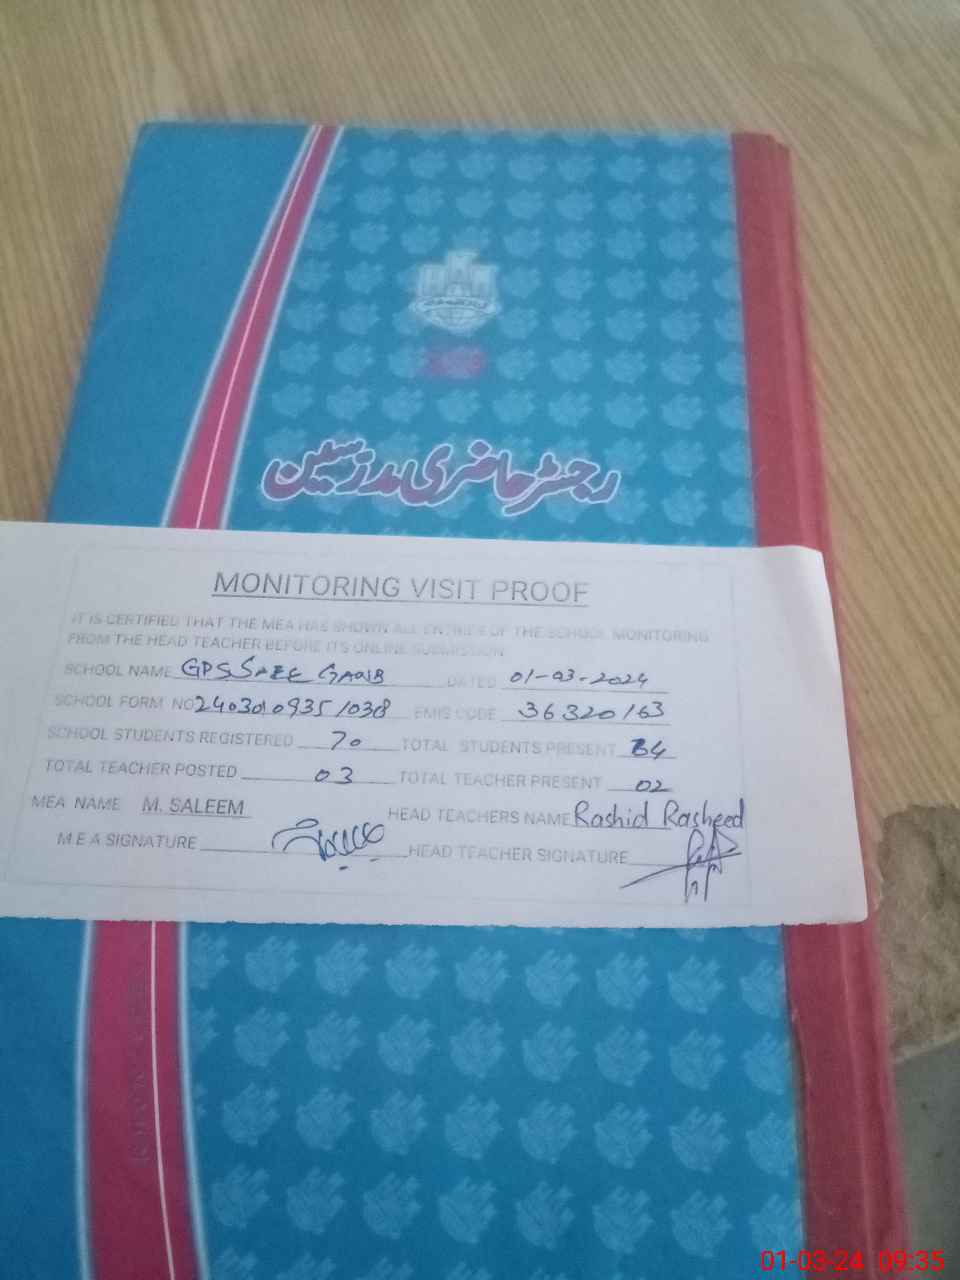 رجسٹر حاضری مدرسین
MONITORING VISIT PROOF
IT IS CERTIFIED THAT THE MEA HAS SHOWN ALL ENTRIES OF THE SCHOOL MONITORING
FROM THE HEAD TEACHER BEFORE ITS ONLINE SUBMISSION
SCHOOL NAME GPS SABE GAAIB DATED 01-03-2024
SCHOOL FORM NO 240301093510308 EMIS CODE 36320163
SCHOOL STUDENTS REGISTERED 70 TOTAL STUDENTS PRESENT 64
TOTAL TEACHER POSTED 03 TOTAL TEACHER PRESENT 02
MEA NAME M. SALEEM HEAD TEACHERS NAME Rashid Rasheed
M.E A SIGNATURE HEAD TEACHER SIGNATURE
01-03-24 09:35